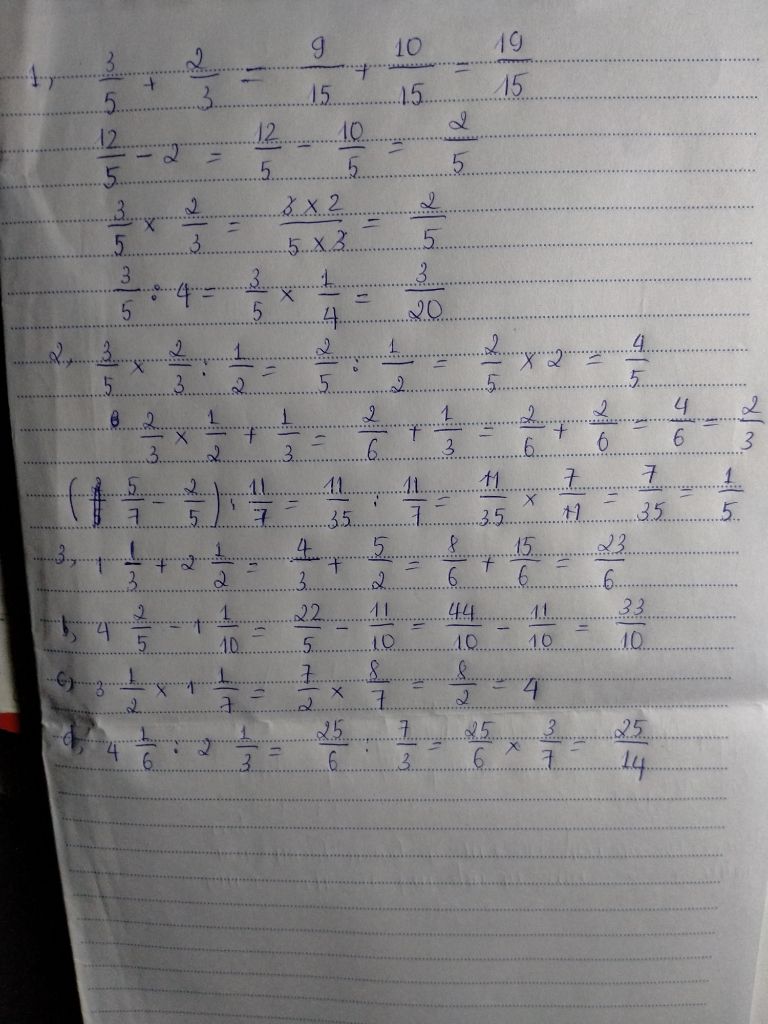 1, 3/5 + 2/3 = 9/15 + 10/15 = 19/15
12/5 - 2 = 12/5 - 10/5 = 2/5
3/5 × 2/3 = 3 × 2/5 × 3 = 2/5
3/5 : 4 = 3/5 × 1/4 = 3/20
2, 3/5 × 2/3 : 1/2 = 2/5 : 1/2 = 2/5 × 2 = 4/5
2/3 × 1/2 + 1/3 = 2/6 + 1/3 = 2/6 + 2/6 = 4/6 = 2/3
( 5/7 - 2/5 ) : 11/7 = 11/35 : 11/7 = 11/35 × 7/11 = 7/35 = 1/5
3, 1 1/3 + 2 1/2 = 4/3 + 5/2 = 8/6 + 15/6 = 23/6
b, 4 2/5 - 1 1/10 = 22/5 - 11/10 = 44/10 - 11/10 = 33/10
c, 3 1/2 × 1 1/7 = 7/2 × 8/7 = 8/2 = 4
d, 4 1/6 : 2 1/3 = 25/6 : 7/3 = 25/6 × 3/7 = 25/14